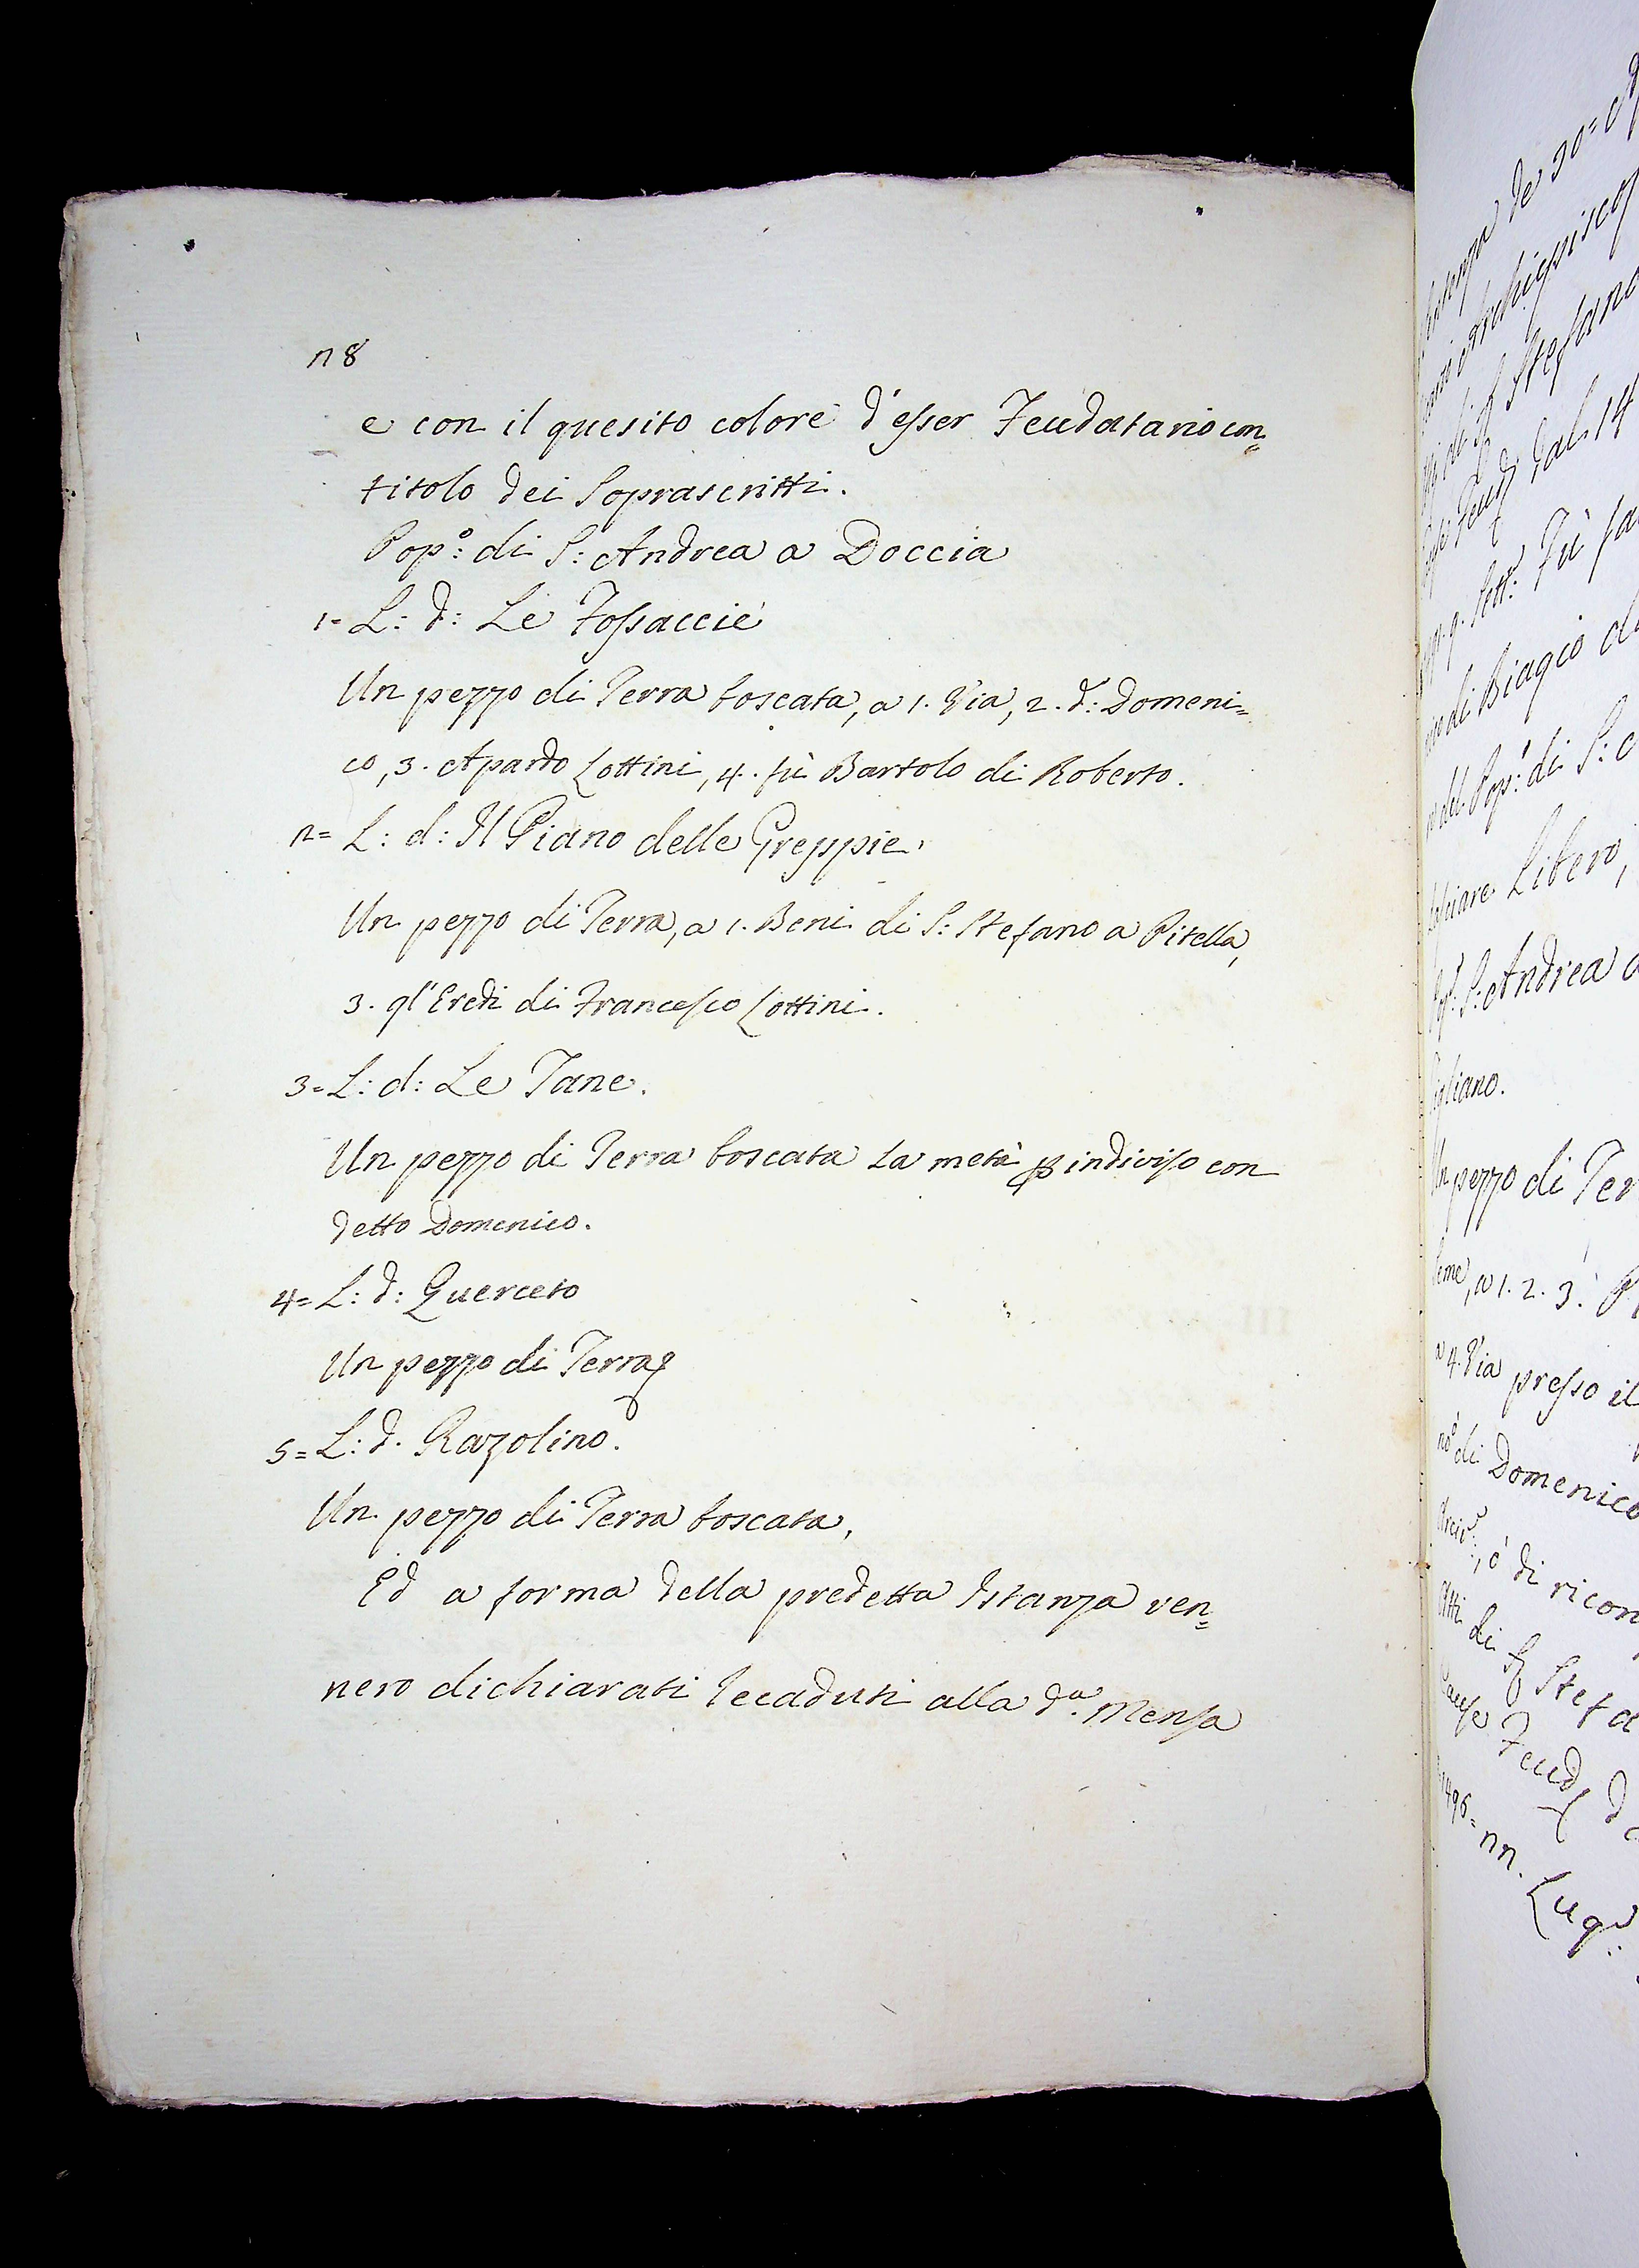 n 8
e con il quesito colore d'esser Feudatario con=
titolo dei Soprascritti.
Pop.º: di S: Andrea a Doccia
1= L: d: Le Fossaccie
Un pezzo di Terra boscata, a 1. Via, 2. d: Domeni=
co, 3. Apardo Lottini, 4. fù Bartolo di Roberto.
2= L: d: Il Piano delle Greppie.
Un pezzo di Terra, a 1. Beni di S: Stefano a Pitella,
3. gl'Eredi di Francesco Lottini.
3= L: d: Le Tane.
Un pezzo di Terra boscata La metà p indiviso con
detto Domenico.
4= L: d: Querceto
Un pezzo di Terra
5= L: d. Razolino.
Un pezzo di Terra boscata,
Ed a forma della predetta Istanza ven=
nero dichiarati decaduti alla d.ª Mensa
de 30=
Stefano
dal 14
Fù
di Biagio
del Pop: di S:
Libero,
S: Andrea a
Un pezzo di Ter
a 1. 2. 3.
4. Via presso il
di Domenico
ò di ricon
di Stefa
Feud
1496= nn. Lug: